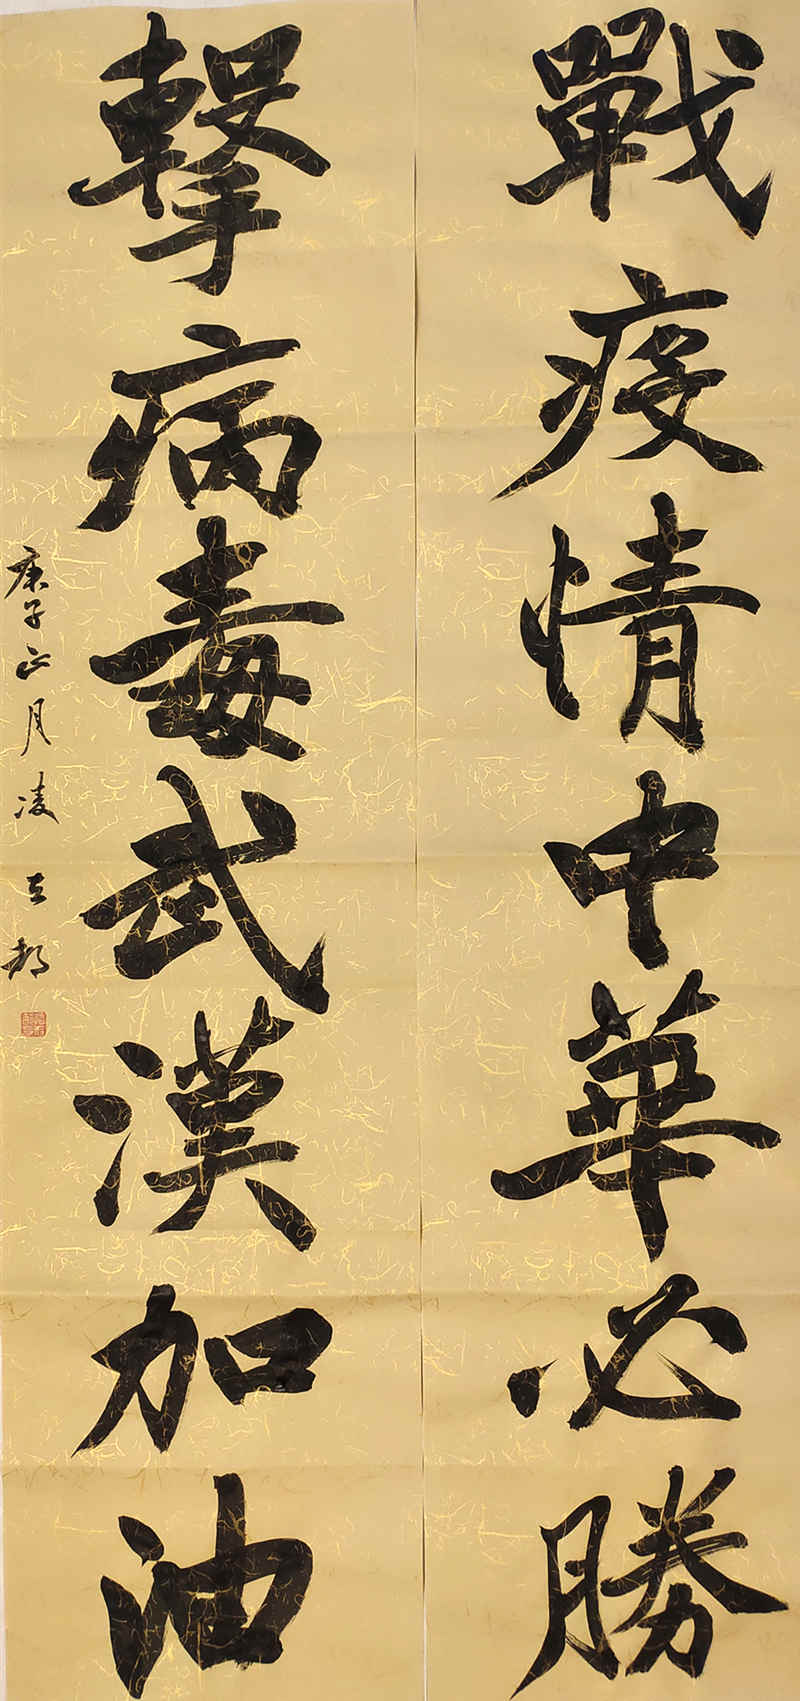 戰疫情中華必勝
擊病毒武漢加油
庚子正月凌立都